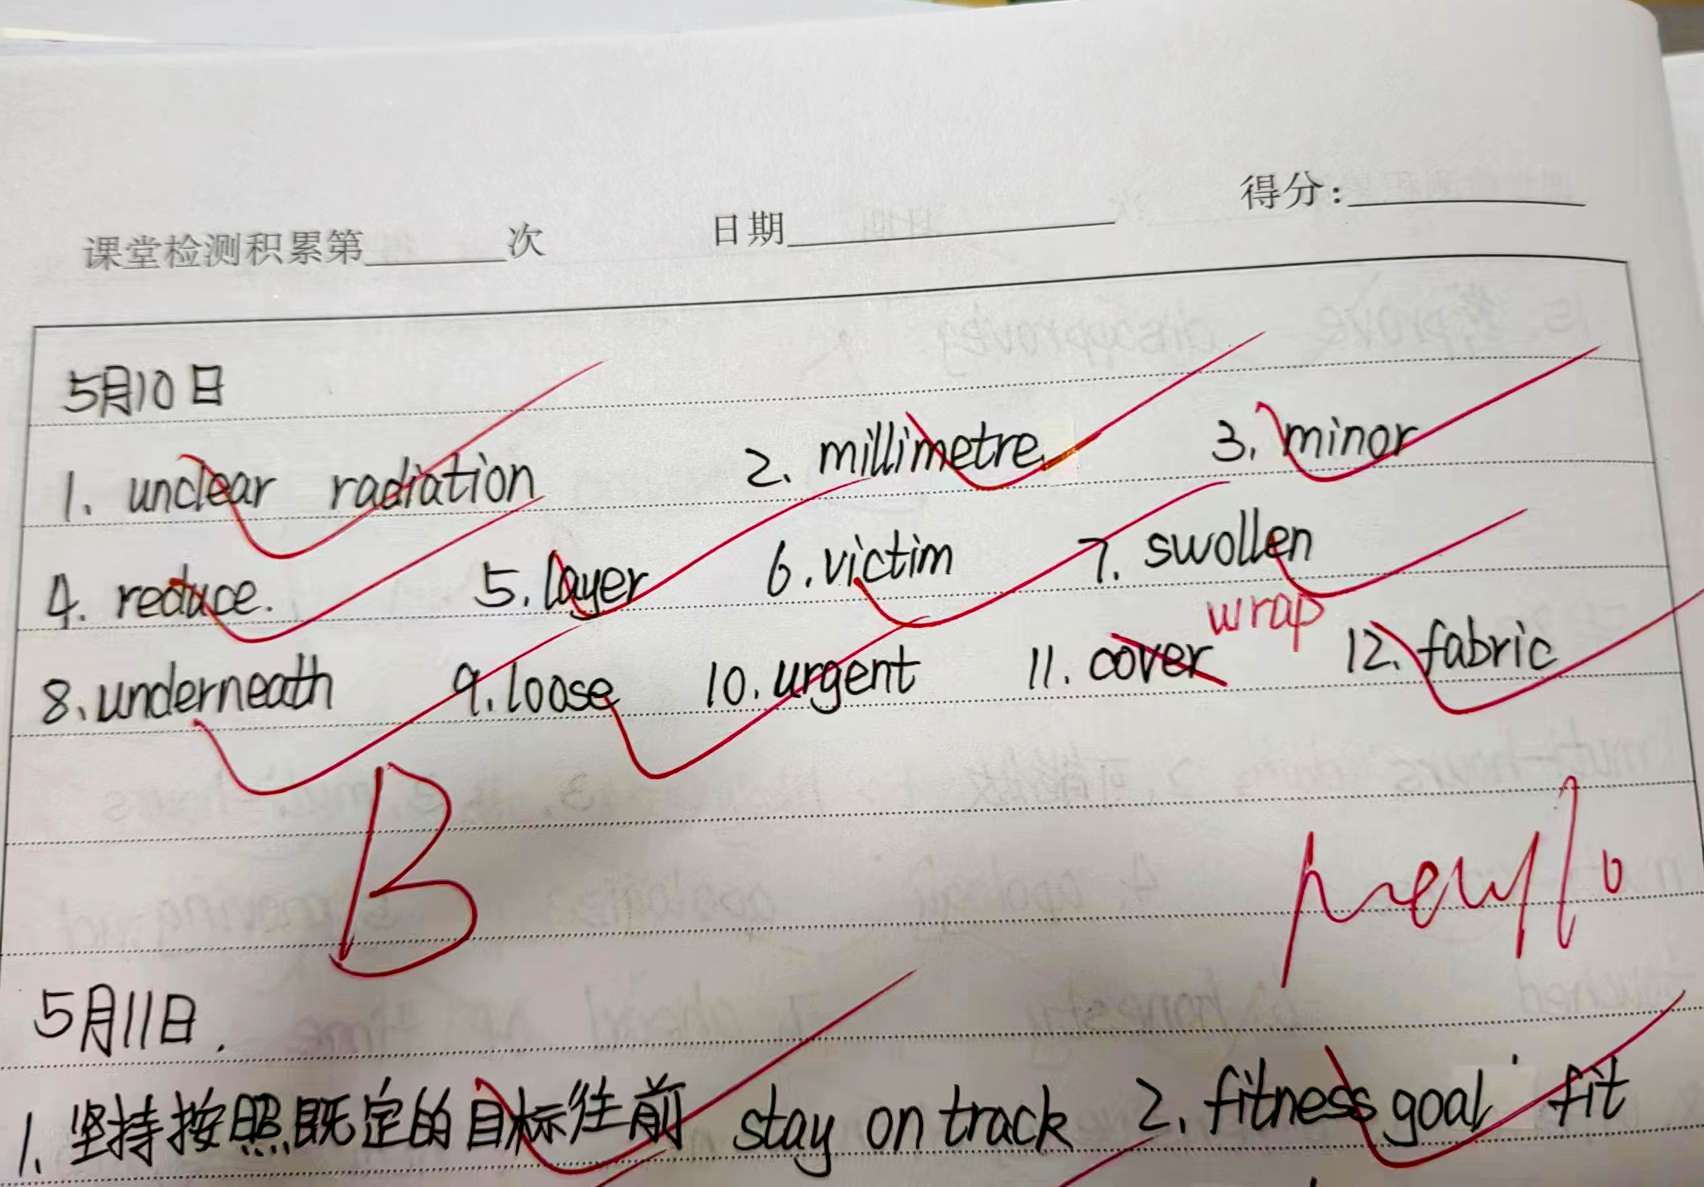 得分:
课堂检测积累第 次 日期
5月10日
1. unclear radiation 2. millimetre 3. minor
4. reduce. 5. layer 6. victim 7. swollen
wrap
8. underneath 9. loose 10. urgent 11. cover 12. fabric
B
5月11日.
1. 坚持按照既定的目标往前 stay on track 2. fitness goal fit